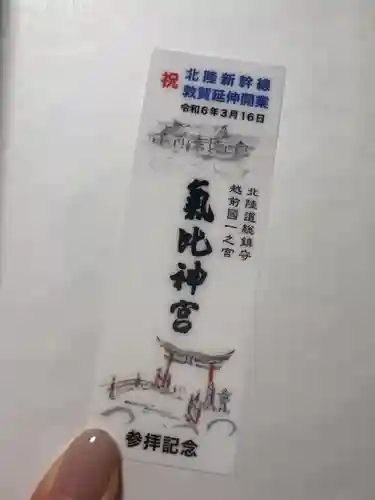 祝
北陸新幹線
敦賀延伸開業
令和6年3月16日
北陸道総鎮守
越前國一之宮
氣比神宮
参拝記念